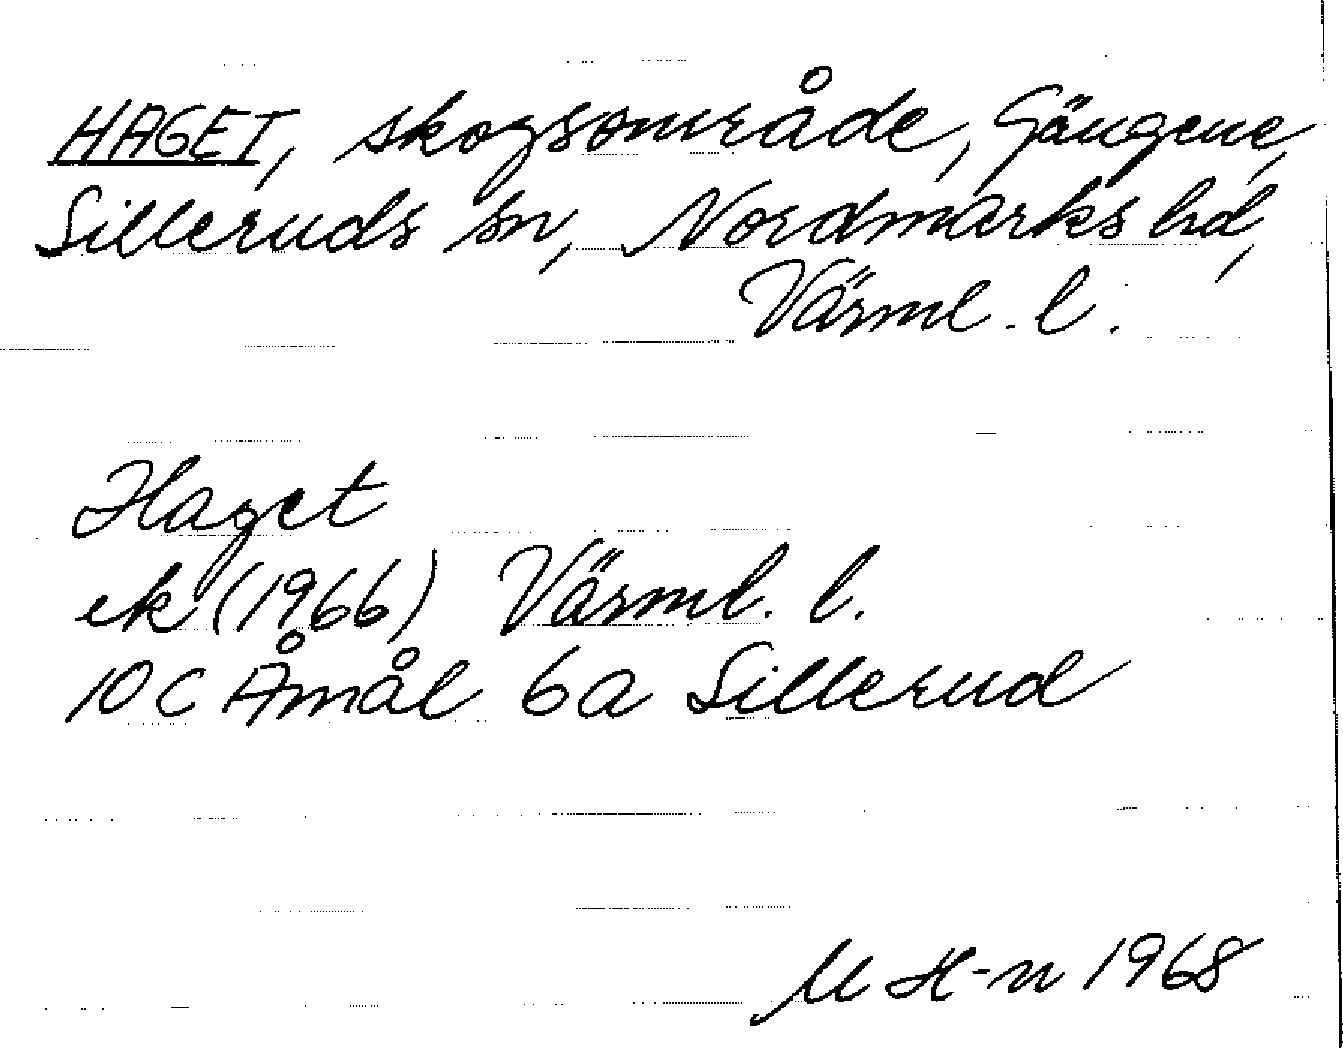 HAGET, skogsområde, Gängene,
Silleruds sn, Nordmarks hd,
Värml. l.
Haget
ek (1966) Värml. l.
10 C Åmål 6a Sillerud
M H-n 1968